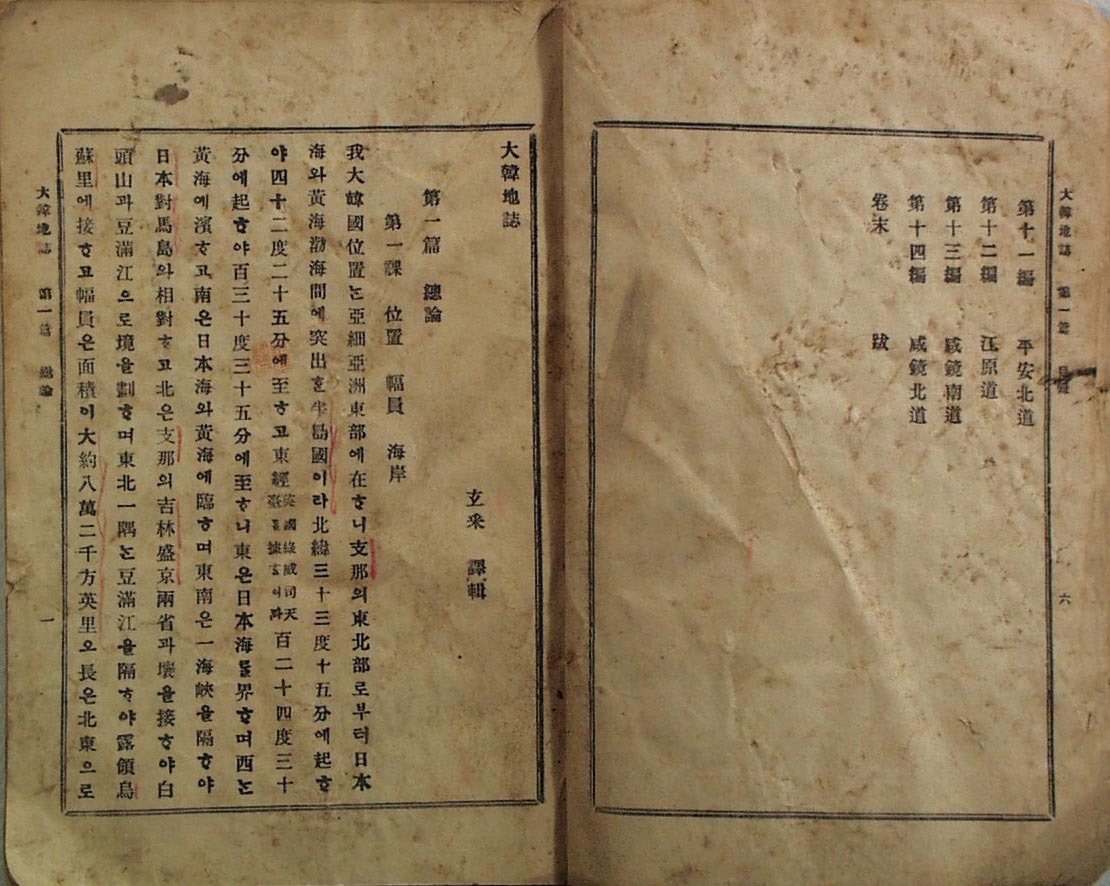 大韓地誌 第一篇 目錄 六
第十一編 平安北道
第十二編 江原道
第十三編 咸鏡南道
第十四編 咸鏡北道
卷末 跋
大韓地誌
玄采 譯輯
第一篇 總論
第一課 位置 幅員 海岸
我大韓國位置ᄂᆞᆫ亞細亞洲東部에在ᄒᆞ니支那의東北部로부터日本
海와黃海渤海間에突出ᄒᆞᆫ半島國이라北緯三十三度十五分에起ᄒᆞ
야四十二度二十五分에至ᄒᆞ고東經英國綠威司天臺를據ᄒᆞ이라百二十四度三十
分에起ᄒᆞ야百三十度三十五分에至ᄒᆞ니東은日本海를界ᄒᆞ며西ᄂᆞᆫ
黃海에濱ᄒᆞ고南은日本海와黃海에臨ᄒᆞ며東南은一海峽을隔ᄒᆞ야
日本對馬島와相對ᄒᆞ고北은支那의吉林盛京兩省과壤을接ᄒᆞ야白
頭山과豆滿江으로境을劃ᄒᆞ며東北一隅ᄂᆞᆫ豆滿江을隔ᄒᆞ야露領烏
蘇里에接ᄒᆞ고幅員은面積이大約八萬二千方英里오長은北東으로
大韓地誌 第一篇 總論 一